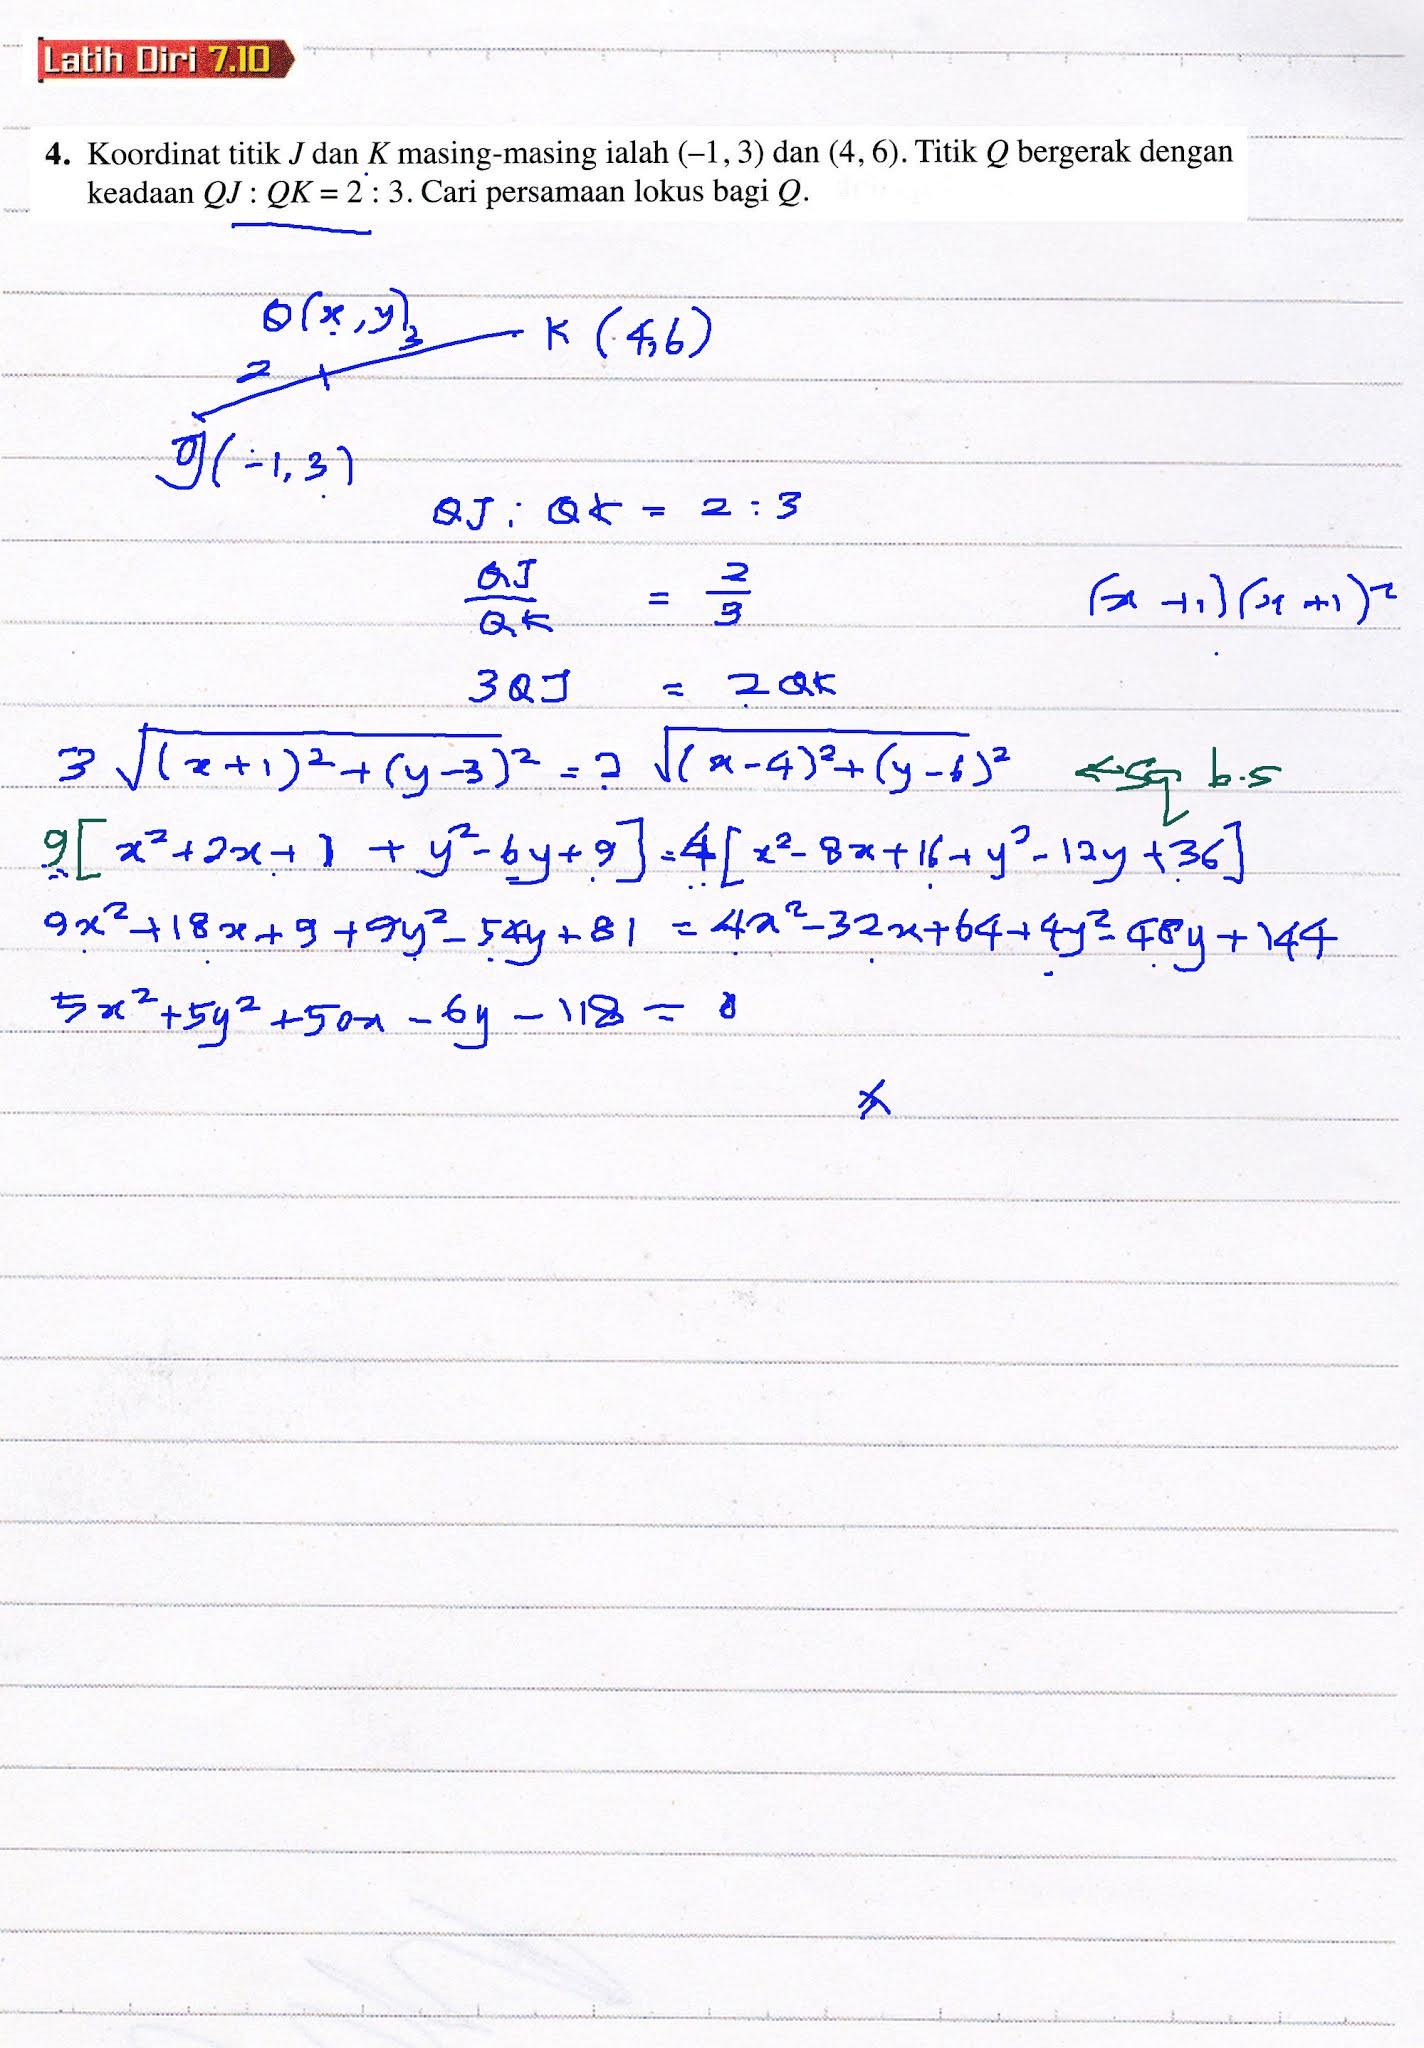 Latih Diri 7.10
4. Koordinat titik J dan K masing-masing ialah (–1, 3) dan (4, 6). Titik Q bergerak dengan
keadaan QJ : QK = 2 : 3. Cari persamaan lokus bagi Q.
Q(x, y)
2 3
K (4,6)
J(-1, 3)
QJ : QK = 2 : 3
QJ/QK = 2/3
(x +1)(x +1)²
3QJ = 2QK
3 √(x+1)²+(y-3)² = 2 √(x-4)²+(y-6)² ← sq b.s
9[x²+2x+1 + y²-6y+9] = 4[x²-8x+16+y²-12y+36]
9x²+18x+9+9y²-54y+81 = 4x²-32x+64+4y²-48y+144
5x²+5y²+50x-6y-118 = 0